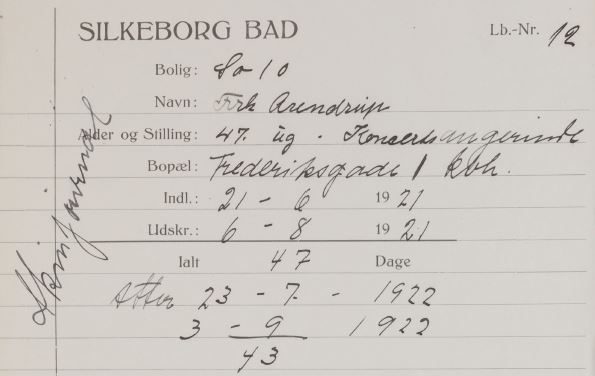 SILKEBORG BAD
Lb.-Nr. 12
Bolig: So 10
Navn: Frk Arendrup
Alder og Stilling: 47. ug - Koncertsangerinde
Bopæl: Frederiksgade 1 Kbh.
Indl.: 21 - 6 1921
Udskr.: 6 - 8 1921
Ialt 47 Dage
Atter 23 - 7 - 1922
3 - 9 1922
43
journal